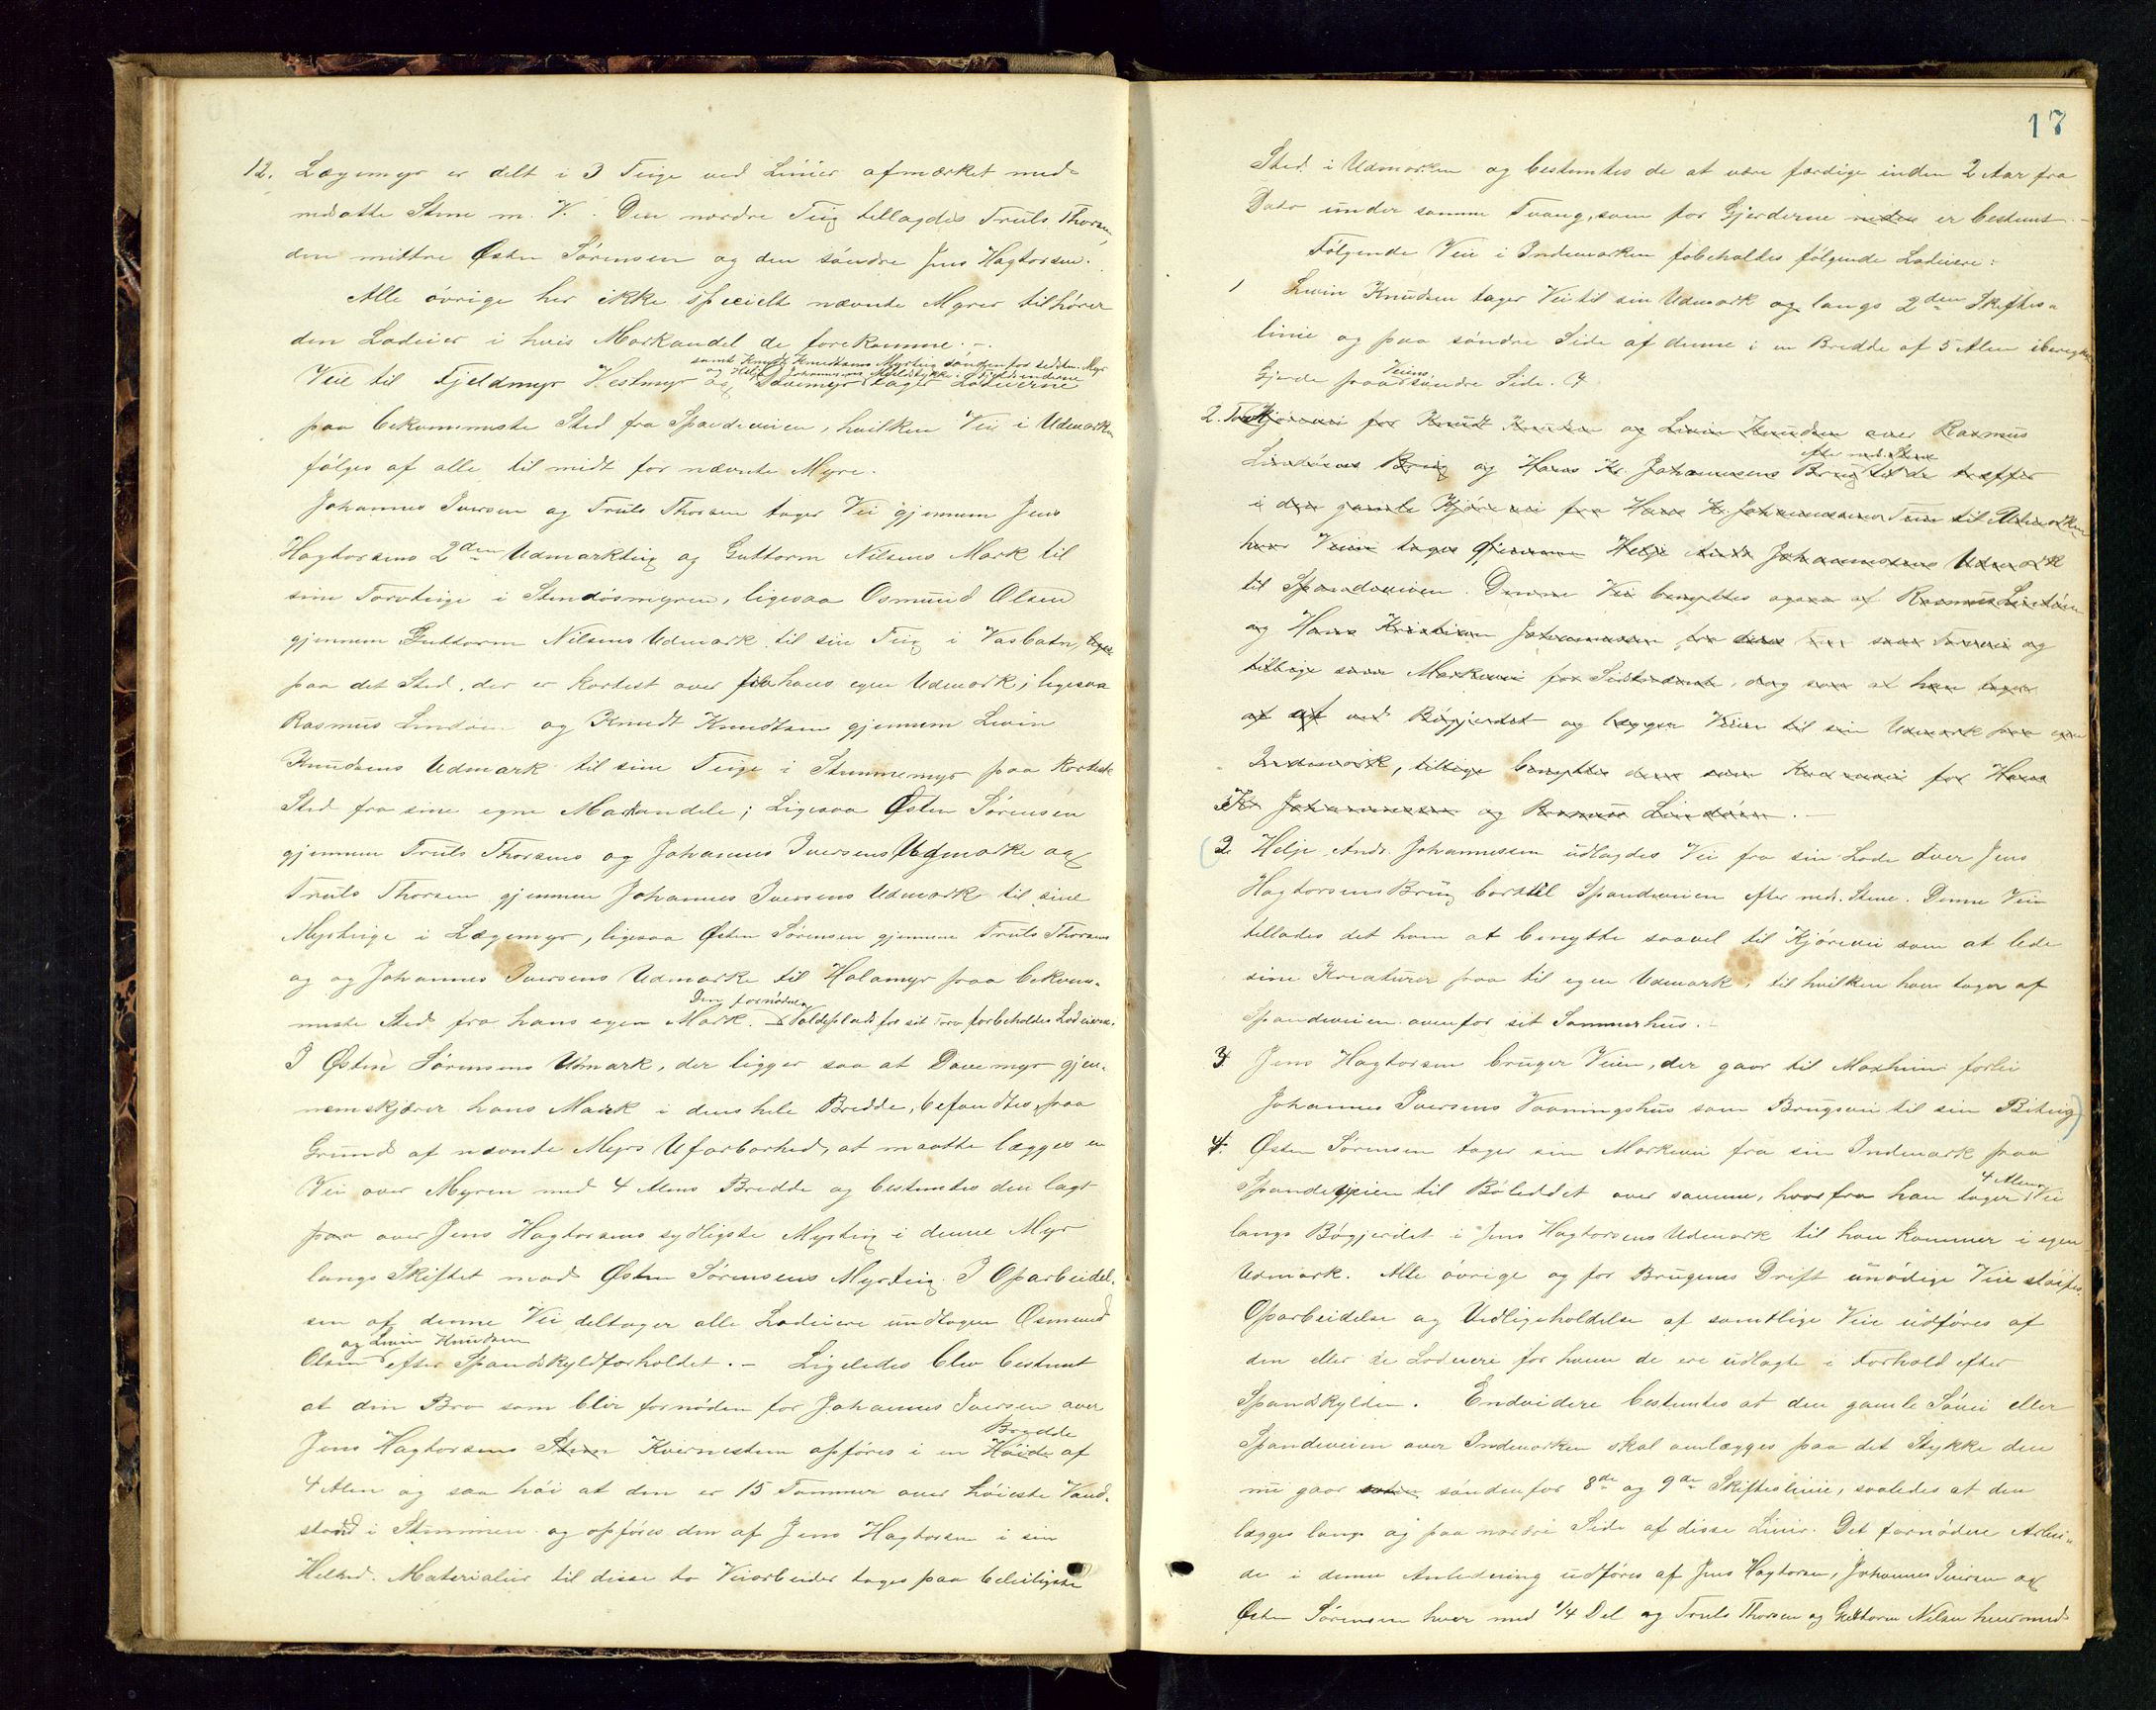 12. Lægemyr er delt i 3 Teige ved Linier afmærket med
nedsatte Stene m. V. Den nordre Teig tillagdes Truls Thorsen,
den mittre Østen Sørensen og den søndre Jens Hagtorsen.
Alle øvrige her ikke specielt nævnte Myrer tilhører
den Lodeier i hvis Markandel de forekomme. -
samt Knudt Knudtsens Myrteig søndenfor
og Helje Johannesens
Veie til Fjeldmyr Hestmyr og Dauemyr tager Lodeierne
paa bekvemmeste Sted fra Spandeveien, hvilken Vei i Udmarken
følges af alle til midt for nævnte Myre.
Johannes Iversen og Truls Thorsen tager Vei gjennem Jens
Hagtorsens 2den Udmarkteig og Guttorm Nilsens Mark til
sine Torvteige i Stendösmyren, ligesaa Osmund Olsen
gjennem Guttorm Nilsens Udmark til sin Teig i Vasbotn,
paa det Sted, der er kortest over fra hans egen Udmark; ligesaa
Rasmus Lindöen og Knudt Knudtsen gjennem Levin
Knudsens Udmark til sine Teige i Stemmemyr paa kortest
Sted fra sine egne Markandele; Ligesaa Østen Sørensen
gjennem Truls Thorsens og Johannes Iversens Udmarke og
Truls Thorsen gjennem Johannes Iversens Udmark til sine
Myrteige i Lægemyr, ligesaa Østen Sørensen gjennem Truls Thorsens
og og Johannes Iversens Udmarke til Holamyr paa bekvem-
Den fornödne
meste Sted fra hans egen Mark. Valdeplads for sit Torv forbeholdes Lodeierne.
I Østen Sørensens Udmark, der ligger saa at Dauemyr gjen-
nemskjærer hans Mark i dens hele Bredde, befandtes, paa
Grund af nævnte Myrs Ufarbarhed, at maatte lægges en
Vei over Myren med 4 Alens Bredde og bestemtes den lagt
paa over Jens Hagtorsens sydligste Myrteig i denne Myr
langs Skiftet mod Østen Sørensens Myrteig. I Oparbeidel-
sen af denne Vei deltager alle Lodeiere undtagen Osmund
og Levin Knudsen
Olsen efter Spandskyldforholdet. - Ligeledes blev bestemt
at den Bro som blir fornöden for Johannes Iversen over
Bredde
Jens Hagtorsens Stem Kvernestem opføres i en Høide af
4 Alen og saa höi at den er 15 Tommer over höieste Vand-
stand i Stemmen og opføres den af Jens Hagtorsen i sin
Helhed. Materialier til disse to Veiarbeider tages paa beleiligste
17
Sted i Udmarken og bestemtes de at være færdige inden 2 Aar fra
Dato under samme Tvang, som for Gjerderne neden er bestemt. -
Følgende Veie i Indmarken fobeholdes følgende Lodeiere:
1 Levin Knudsen tager Vei til sin Udmark og langs 2den Skiftes-
linie og paa søndre Side af denne i en Bredde af 5 Alen iberegnet
Veiens
Gjerde paa søndre Side.
2. Kjørevei for Knudt Knudsen og Levin Knudsen over Rasmus
efter neds. Stene
Lindöens Brug og Hans Kr. Johannesens Brug til de træffer
i den gamle Kjørevei fra Hans Kr. Johannesens Tun til Udmarken
hvor Veien tages gjennem Helje Andr Johannesens Udmark
til Spandeveien. Denne Vei benyttes ogsaa af Rasmus Lindöen
og Hans Kristian Johannesen fra deres Tun som Torvvei og
tillige som Markevei for Sidstnævnte, dog saa at han tager
af ved Bögjerdet og lægger Veien til sin Udmark paa egen
Indmark, tillige benyttes den som Kvernvei for Hans
Kr Johannesen og Rasmus Lindöen. -
2. Helje Andr. Johannesen udlagdes Vei fra sin Lode over Jens
Hagtorsens Brug bort til Spandeveien efter neds. Stene. Denne Vei
tillades det ham at benytte saavel til Kjørevei som at lede
sine Kreaturer paa til egen Udmark, til hvilken han tager af
Spandeveien ovenfor sit Sommerhus. -
3 Jens Hagtorsen bruger Veien, der gaar til Moxheim forbi
Johannes Iversens Vaaningshus som Brugsvei til sin Böteig
4. Østen Sørensen tager sin Markevei fra sin Indmark paa
4 Alens
Spandeveien til Böleddet over samme, hvorfra han tager Vei
langs Bögjerdet i Jens Hagtorsens Udmark til han kommer i egen
Udmark. Alle övrige og for Brugenes Drift unödige Veie slöifes.
Oparbeidelse og Vedligeholdelse af samtlige Veie udföres af
den eller de Lodeiere for hvem de ere udlagte i Forhold efter
Spandskylden. Endvidere bestemtes at den gamle Sövei eller
Spandeveien over Indmarken skal omlægges paa det Stykke den
nu gaar søndenfor 8de og 9de Skifteslinie, saaledes at den
lægges langs og paa nordre Side af disse Linier. Det fornödne Arbei-
de i denne Anledning udföres af Jens Hagtorsen, Johannes Iversen og
Østen Sørensen hver med 1/4 Del og Truls Thorsen og Guttorm Nilsen hver med